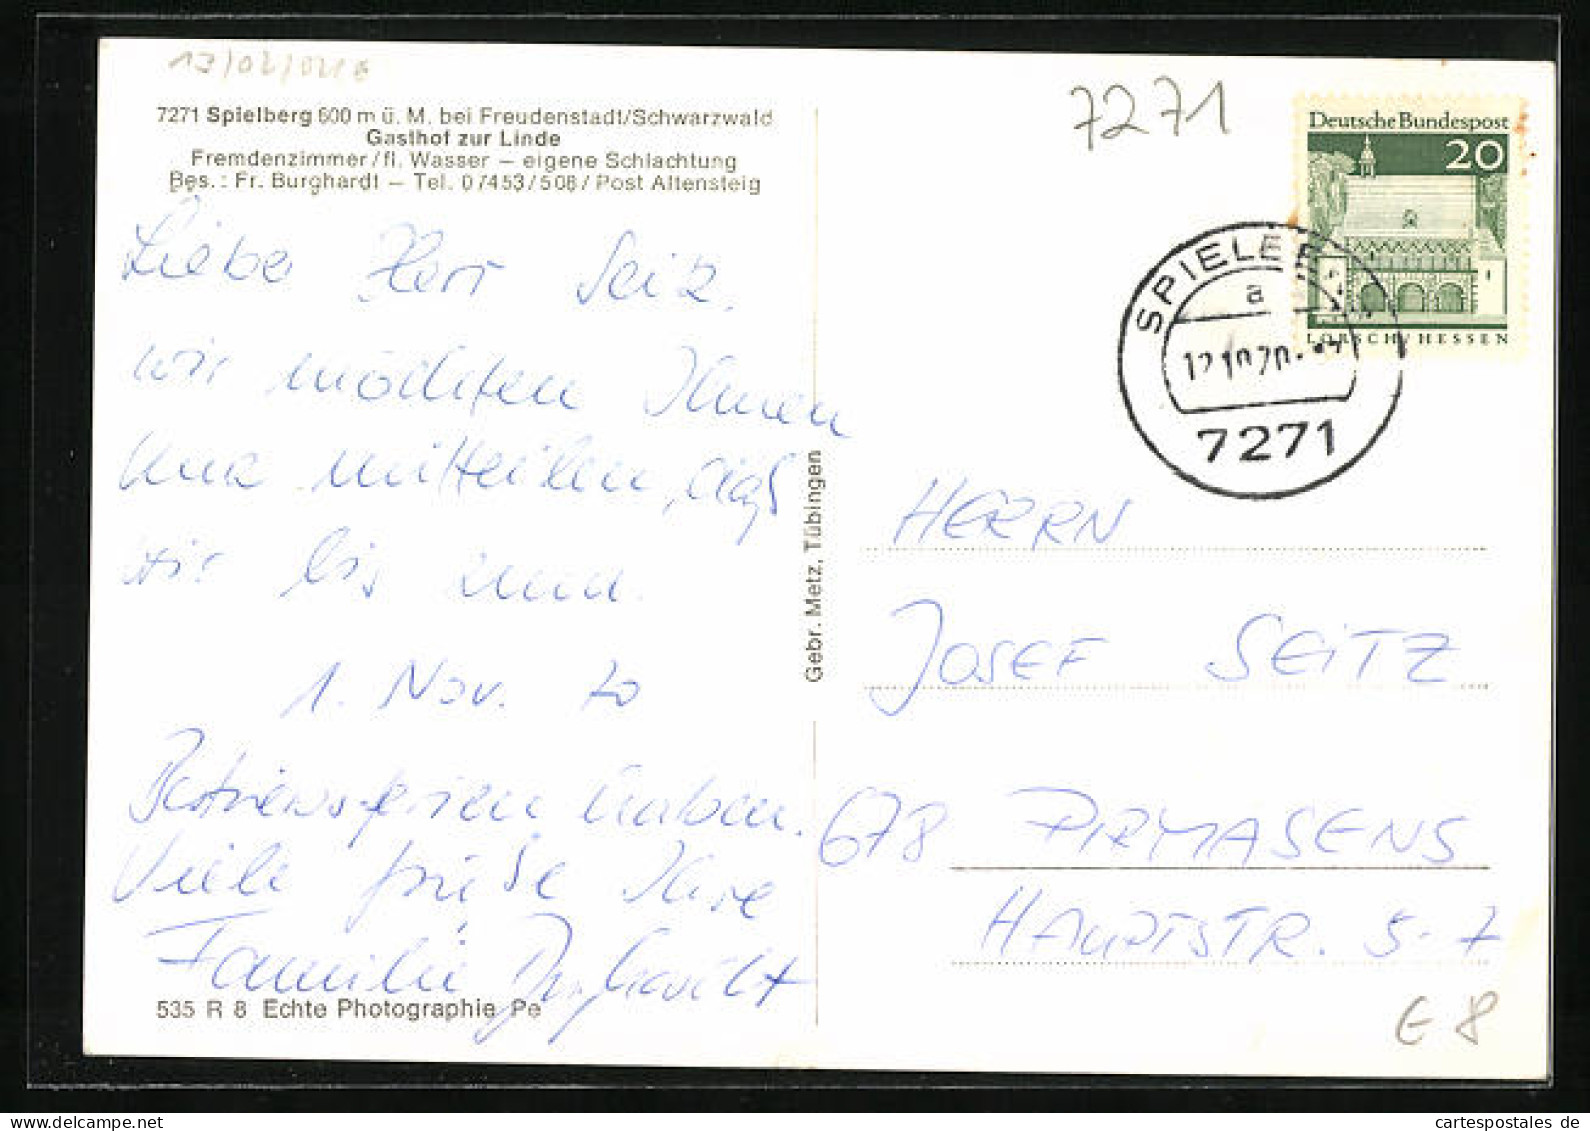 7271 Spielberg 600 m ü. M. bei Freudenstadt/Schwarzwald
Gasthof zur Linde
Fremdenzimmer/fl. Wasser – eigene Schlachtung
Bes.: Fr. Burghardt – Tel. 07453/508/Post Altensteig
Lieber Herr Seitz,
wir möchten Ihnen
kurz mitteilen, daß
wir bis zum
1. Nov. 70
Betriebsferien haben.
Viele Grüße Ihre
Familie Burghardt
535 R 8 Echte Photographie Pe
Gebr. Metz, Tübingen
7271
Deutsche Bundespost
20
LORSCH/HESSEN
a
7271
HERRN
JOSEF SEITZ
678 PIRMASENS
HAUPTSTR. 5-7
€ 8
cartespostales.de